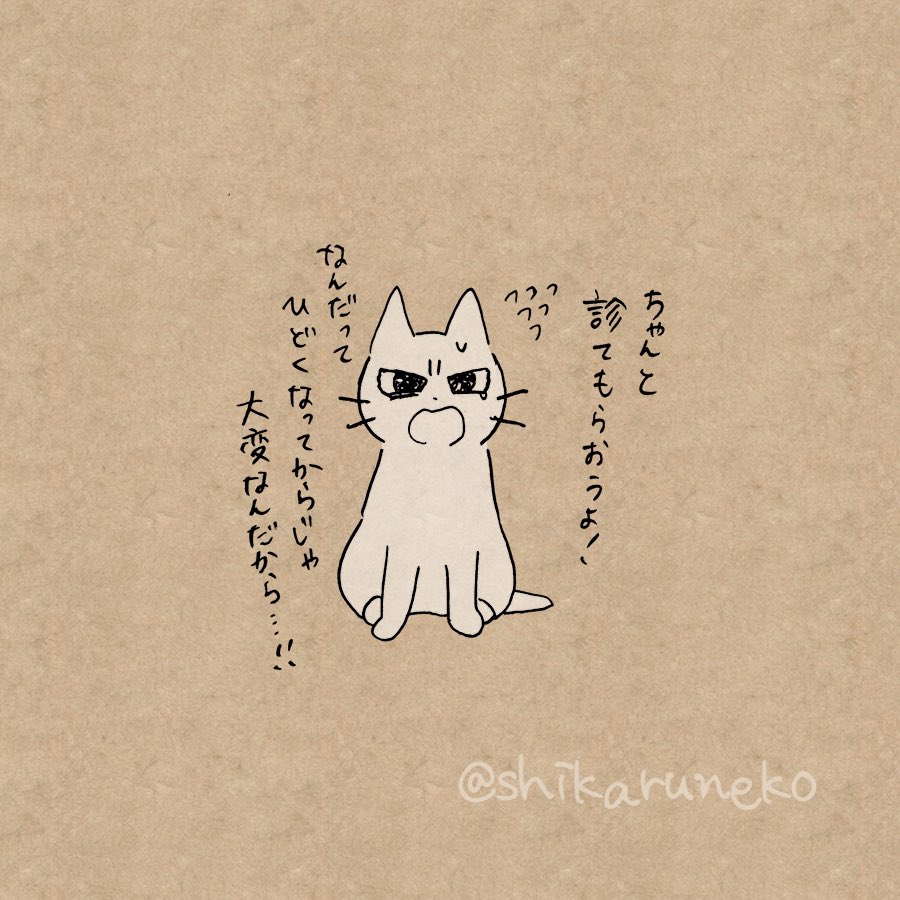 ちゃんと
診てもらおうよ!
なんだって
ひどくなってからじゃ
大変なんだから…!!
@shikaruneko